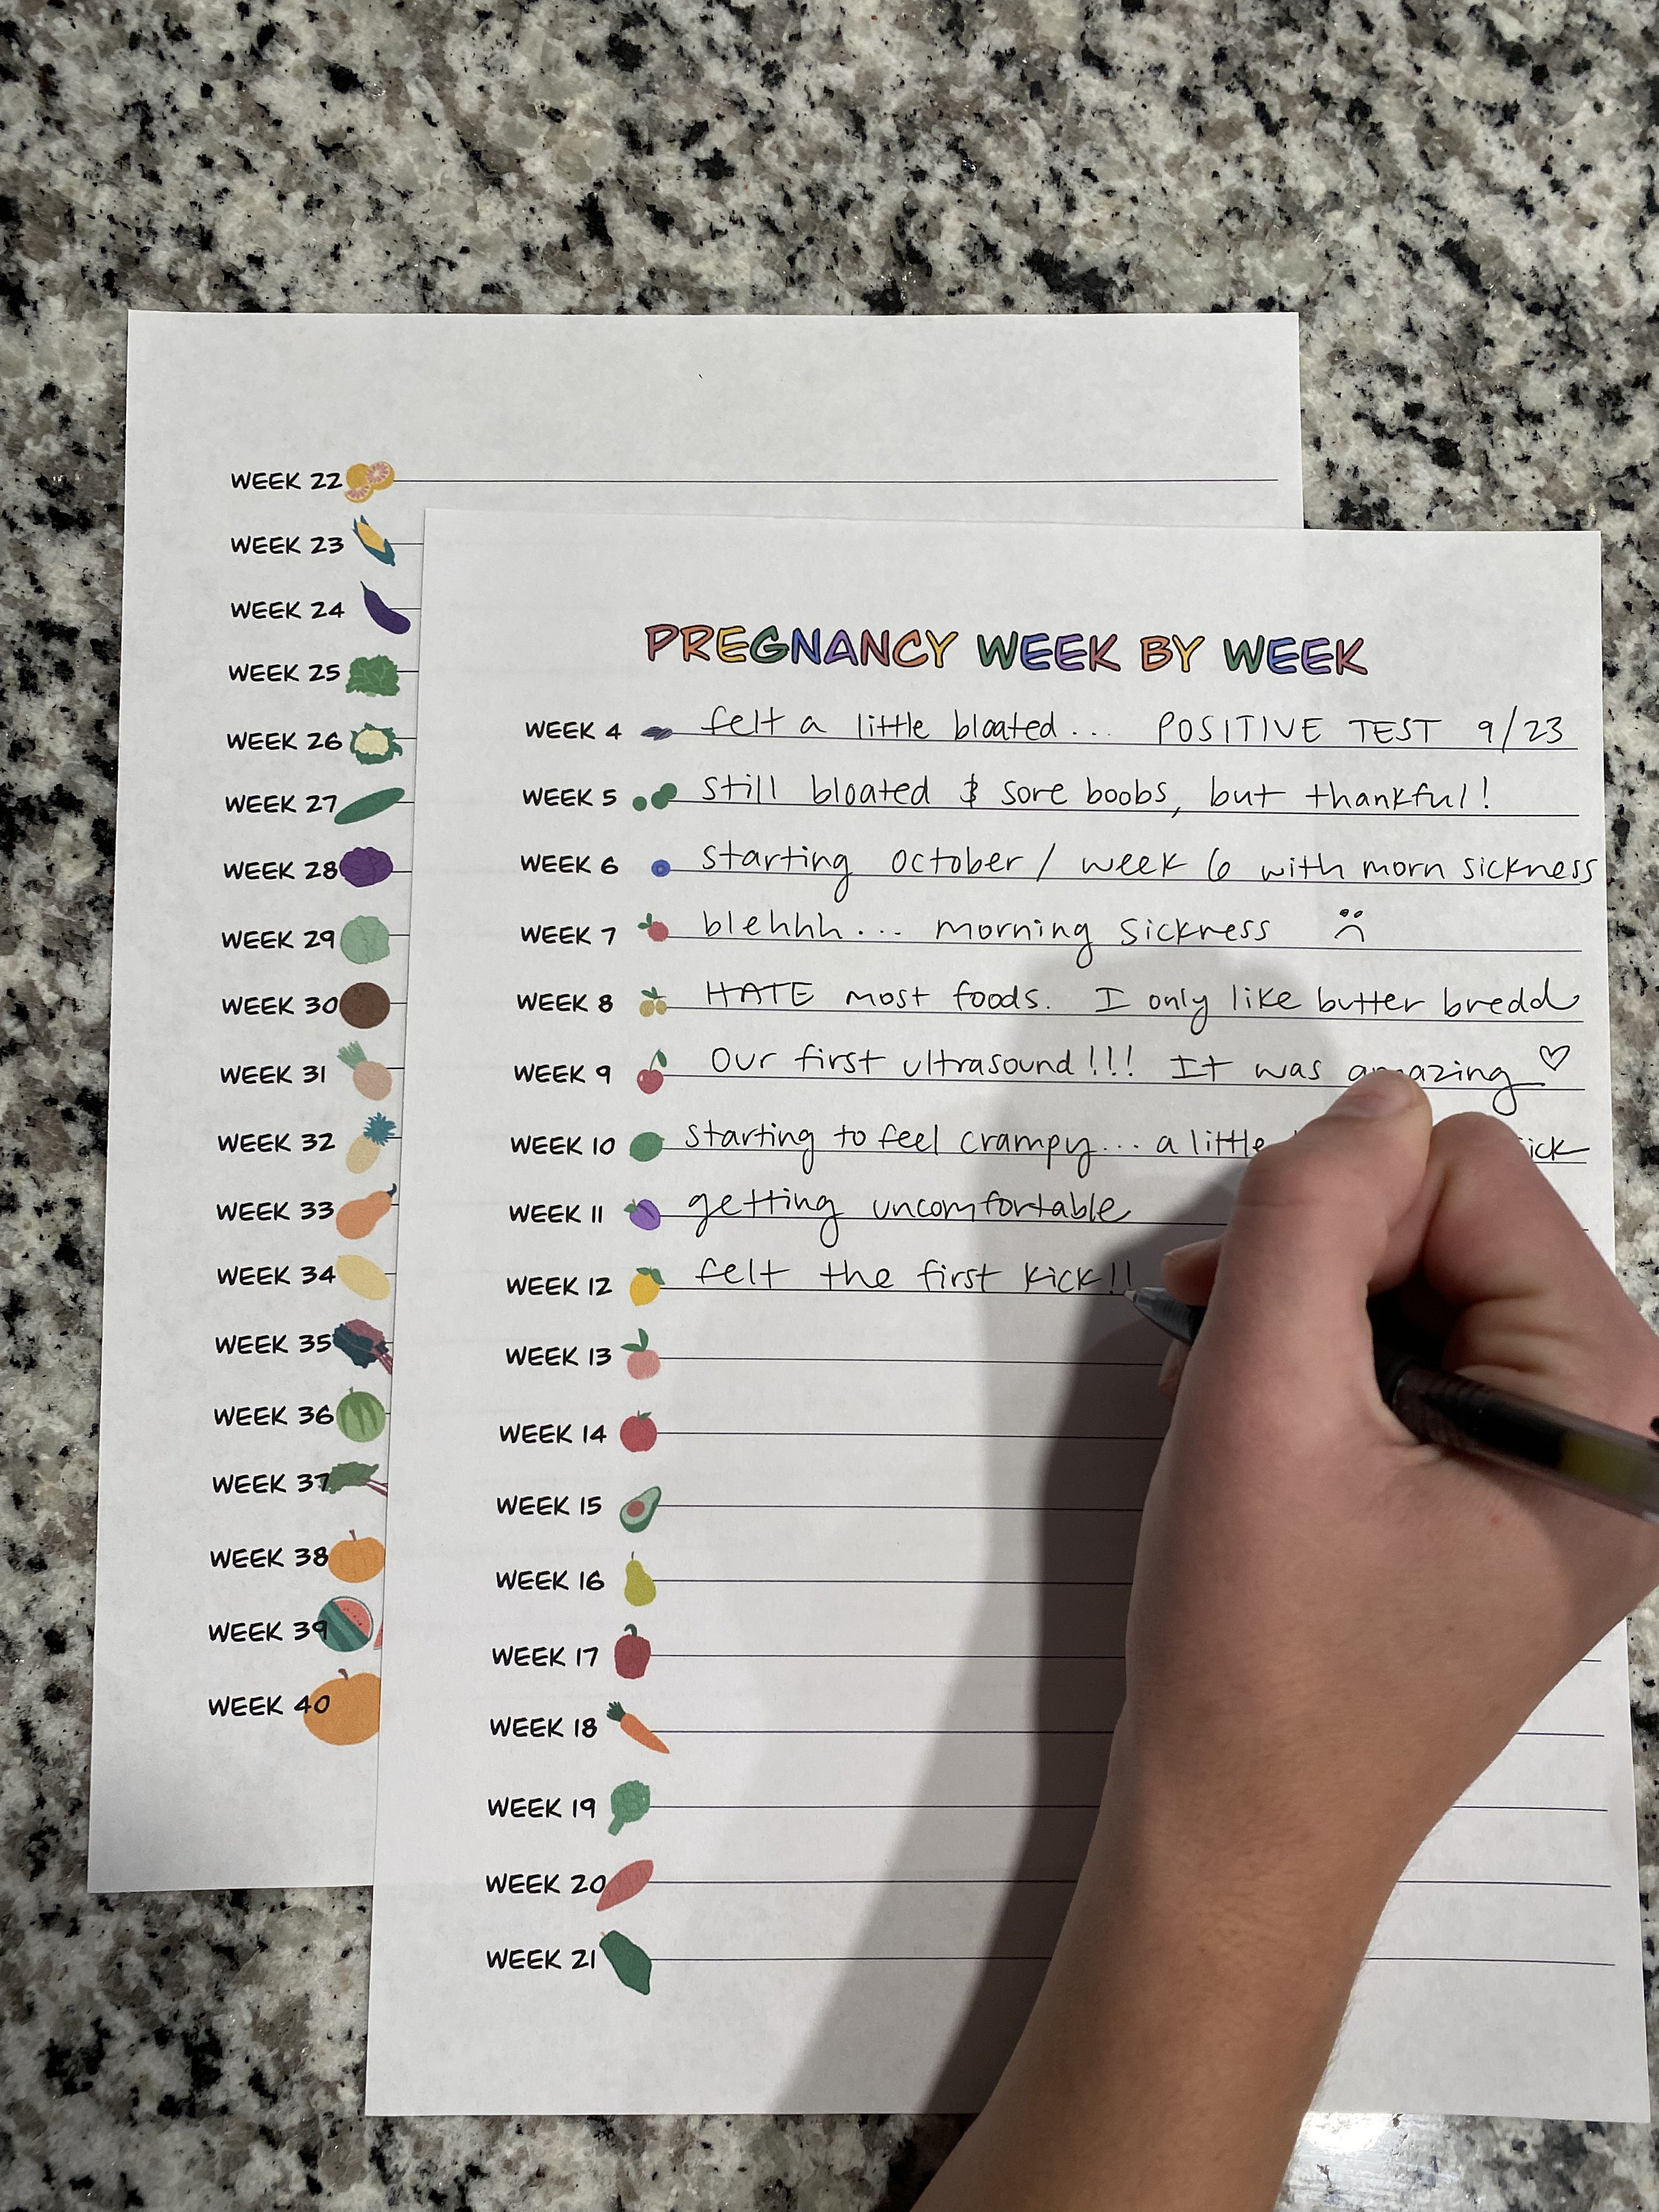 WEEK 22
WEEK 23
WEEK 24
WEEK 25
WEEK 26
WEEK 27
WEEK 28
WEEK 29
WEEK 30
WEEK 31
WEEK 32
WEEK 33
WEEK 34
WEEK 35
WEEK 36
WEEK 37
WEEK 38
WEEK 39
WEEK 40
PREGNANCY WEEK BY WEEK
WEEK 4 felt a little bloated... POSITIVE TEST 9/23
WEEK 5 still bloated & sore boobs, but thankful!
WEEK 6 starting october / week 6 with morn sickness
WEEK 7 blehhh... morning sickness
WEEK 8 HATE most foods. I only like butter bredd
WEEK 9 our first ultrasound!!! It was amazing ♡
WEEK 10 starting to feel crampy... a little
WEEK 11 getting uncomfortable
WEEK 12 felt the first kick!!
WEEK 13
WEEK 14
WEEK 15
WEEK 16
WEEK 17
WEEK 18
WEEK 19
WEEK 20
WEEK 21